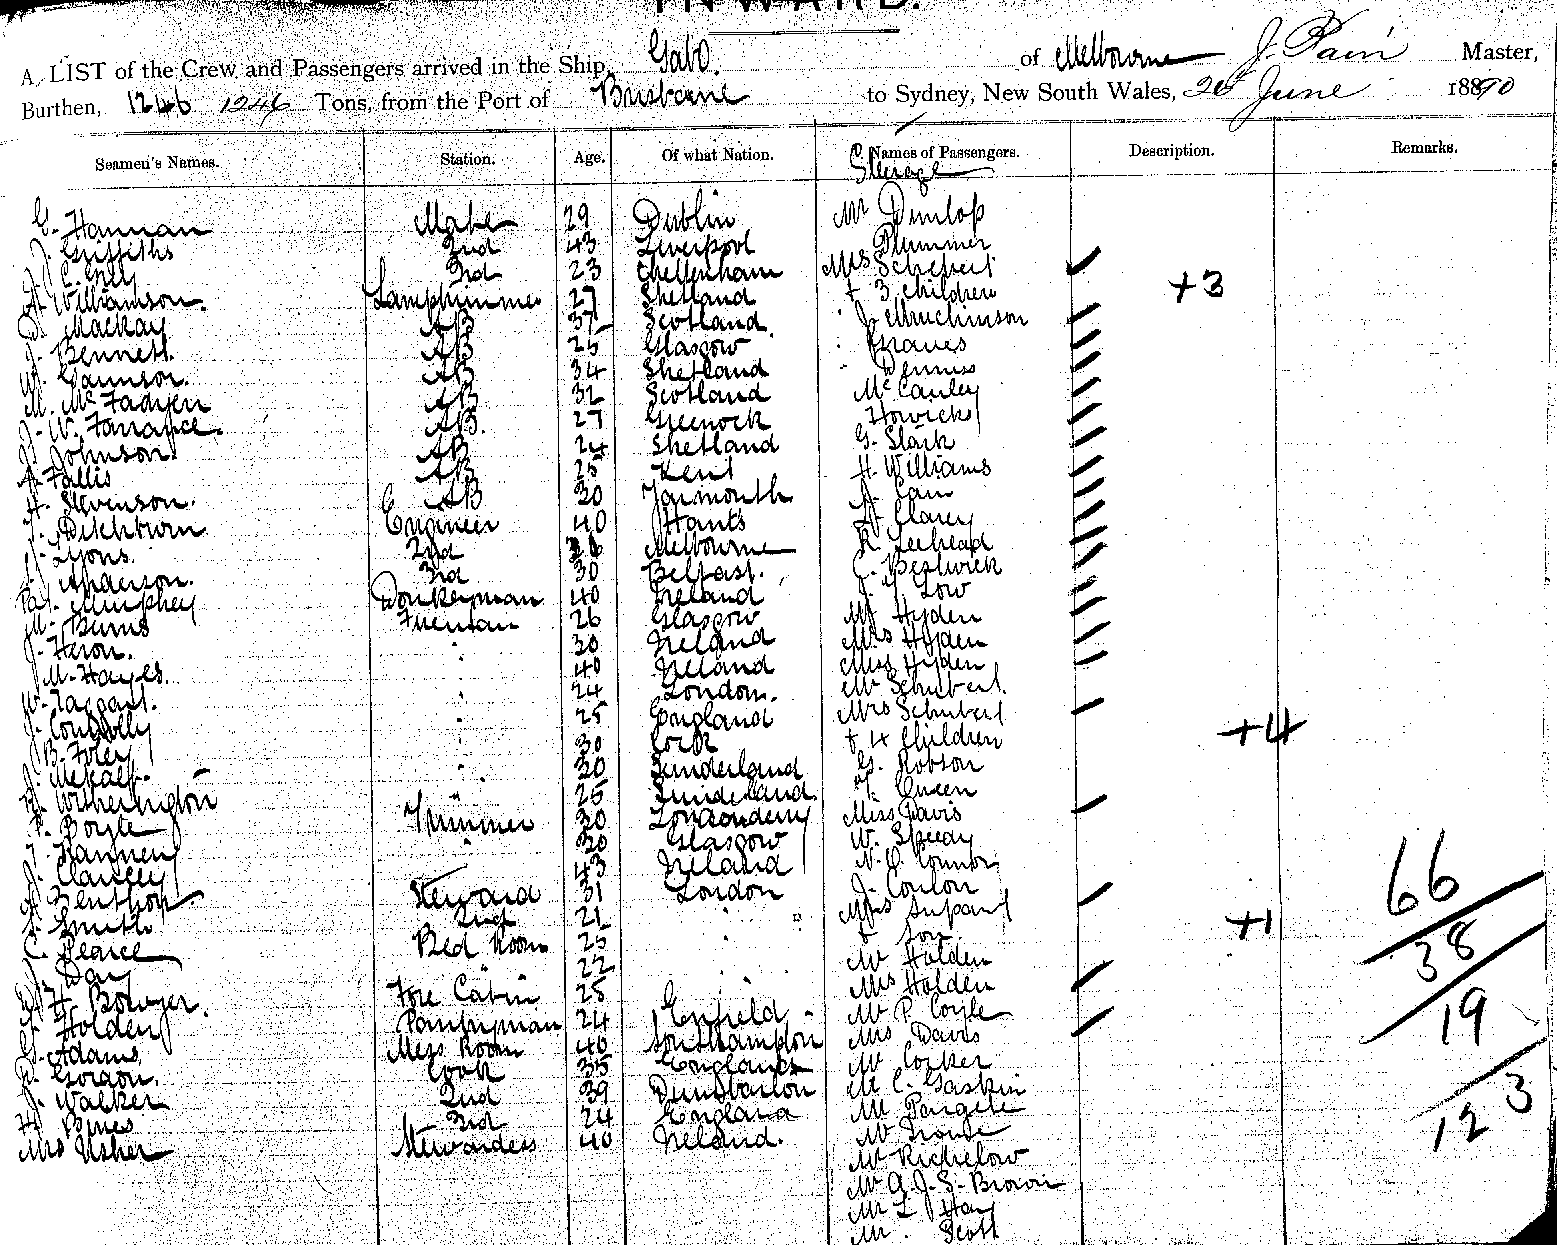 INWARD.
A LIST of the Crew and Passengers arrived in the Ship Gabo. of Melbourne J. Pain Master,
Burthen, 1246 1246 Tons, from the Port of Brisbane to Sydney, New South Wales, 20th June 1890
Seamen's Names. Station. Age. Of what Nation. Names of Passengers. Description. Remarks.
Steerage
G. Hannan Mate 29 Dublin Mr Dunlop
J. Griffiths 2nd 43 Liverpool Mrs Plummer
3rd 23 Cheltenham Mrs Schubert
A. Williamson. Lamptrimmer 27 Shetland + 3 children +3
D. Mackay AB 37 Scotland J. Murchinson
J. Bennett. AB 25 Glasgow Graves
W. Gannson. AB 34 Shetland Dennis
M. McFadyen AB 32 Scotland McCauley
J. W. Farrance. AB. 27 Greenock Howicks
J. Johnson. AB 24 Shetland G. Stark
A. Fallis AB 25 Kent H. Williams
H. Stevenson. AB 30 Yarmouth J.
T. Ditchburn Engineer 40 Hants Clarey
J. Lyons. 2nd Melbourne R. Leehead
Anderson. 3rd 30 Belfast. C. Beswick
Pat. Murphey Donkeyman 40 Ireland J. Low
M. Burns Fireman 26 Glasgow Mr Hyden
J. Heron. " 30 Ireland Mrs Hyden
M. Hayes. " 40 Ireland Miss Hyden
W. Taggart. " 24 London. Mr Schubert.
J. Connolly " 25 England Mrs Schubert
B. Foley " 30 Cork + 4 Children +4
J. Metcalf. " 20 Sunderland G. Robson
Witherington " 25 Sunderland T. Queen
Boyle Trimmer 30 Londonderry Miss Davis
T. Kanney " 30 Glasgow W. Speedy
J. Clancey 43 Ireland N. O'Connor
Benthon Steward 31 London J. Conlon
Smith 2nd 21 " Mrs
C. Pearce Bed Room 25 " + son +1
Day " 22 " Mr Holden
H. Bowyer. Fore Cabin 25 Mrs Holden
Holden Pantryman 24 Enfield Mr P. Coyle
G. Adams. Mess Room 40 Southampton Mrs Davis
Gordon. Cook 35 England Mr Corker
J. Walker 2nd 39 Dumbarton Mr C. Gaskin
H. Bines 3rd 24 England Mr
Mrs Usher Stewardess 40 Ireland. Mr
Mr Richelow
Mr A. J. S. Brown
Mr L. Hay
Mr. Scott
66
38
19
3
12